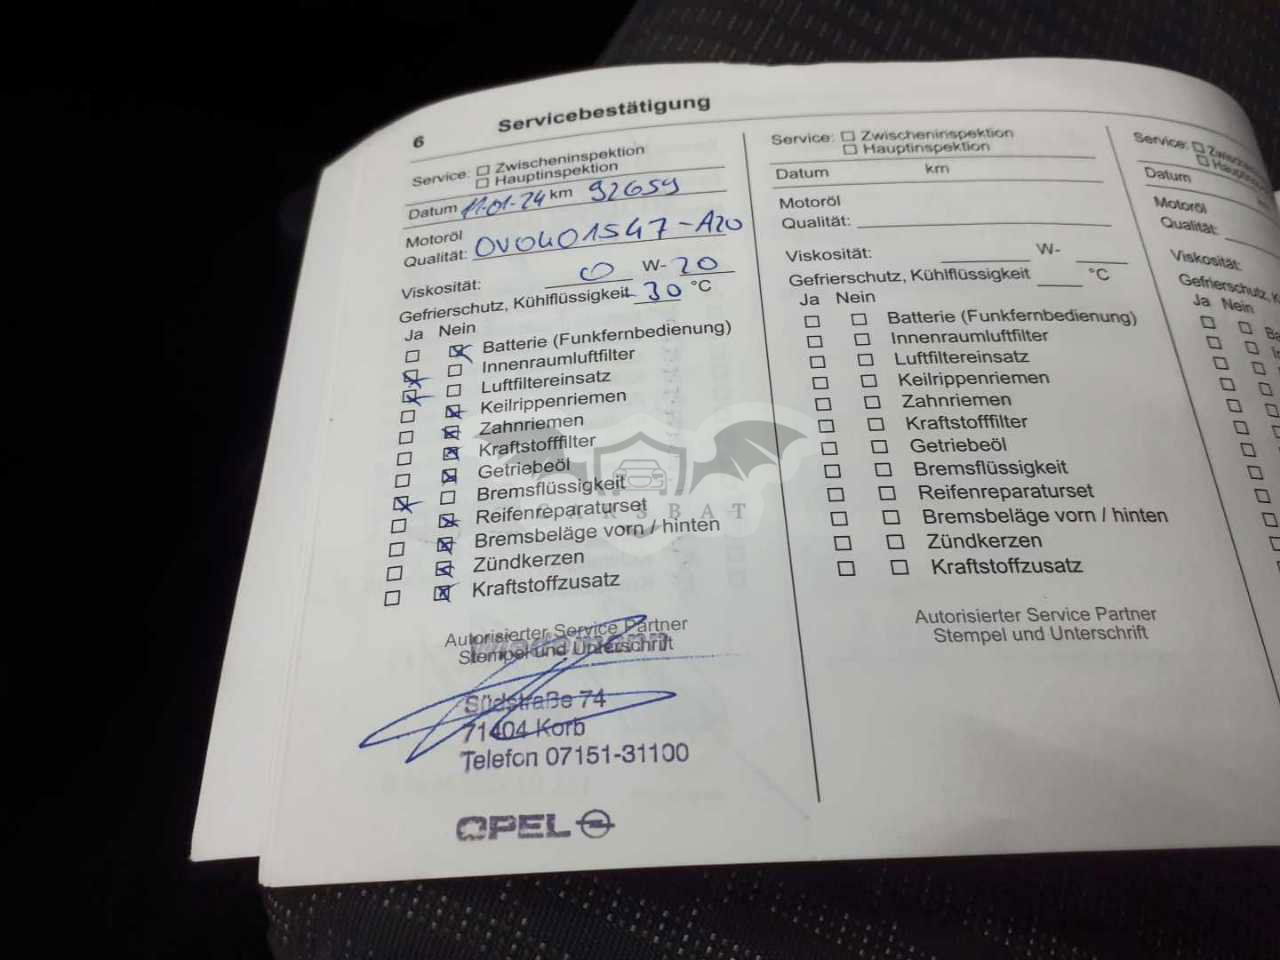 6 Servicebestätigung
Service: Zwischeninspektion
Hauptinspektion
Datum 11-01-24 km 92659
Motoröl
Qualität: OVO401547-A20
Viskosität: 0 W- 20
Gefrierschutz, Kühlflüssigkeit -30 °C
Ja Nein
Batterie (Funkfernbedienung)
Innenraumluftfilter
Luftfiltereinsatz
Keilrippenriemen
Zahnriemen
Kraftstofffilter
Getriebeöl
Bremsflüssigkeit
Reifenreparaturset
Bremsbeläge vorn / hinten
Zündkerzen
Kraftstoffzusatz
Autorisierter Service Partner
Stempel und Unterschrift
Südstraße 74
71404 Korb
Telefon 07151-31100
OPEL
Service: Zwischeninspektion
Hauptinspektion
Datum km
Motoröl
Qualität:
Viskosität: W-
Gefrierschutz, Kühlflüssigkeit °C
Ja Nein
Batterie (Funkfernbedienung)
Innenraumluftfilter
Luftfiltereinsatz
Keilrippenriemen
Zahnriemen
Kraftstofffilter
Getriebeöl
Bremsflüssigkeit
Reifenreparaturset
Bremsbeläge vorn / hinten
Zündkerzen
Kraftstoffzusatz
Autorisierter Service Partner
Stempel und Unterschrift
Service:
Datum
Motoröl
Qualität:
Viskosität:
Gefrierschutz,
Ja Nein
CARSBAT